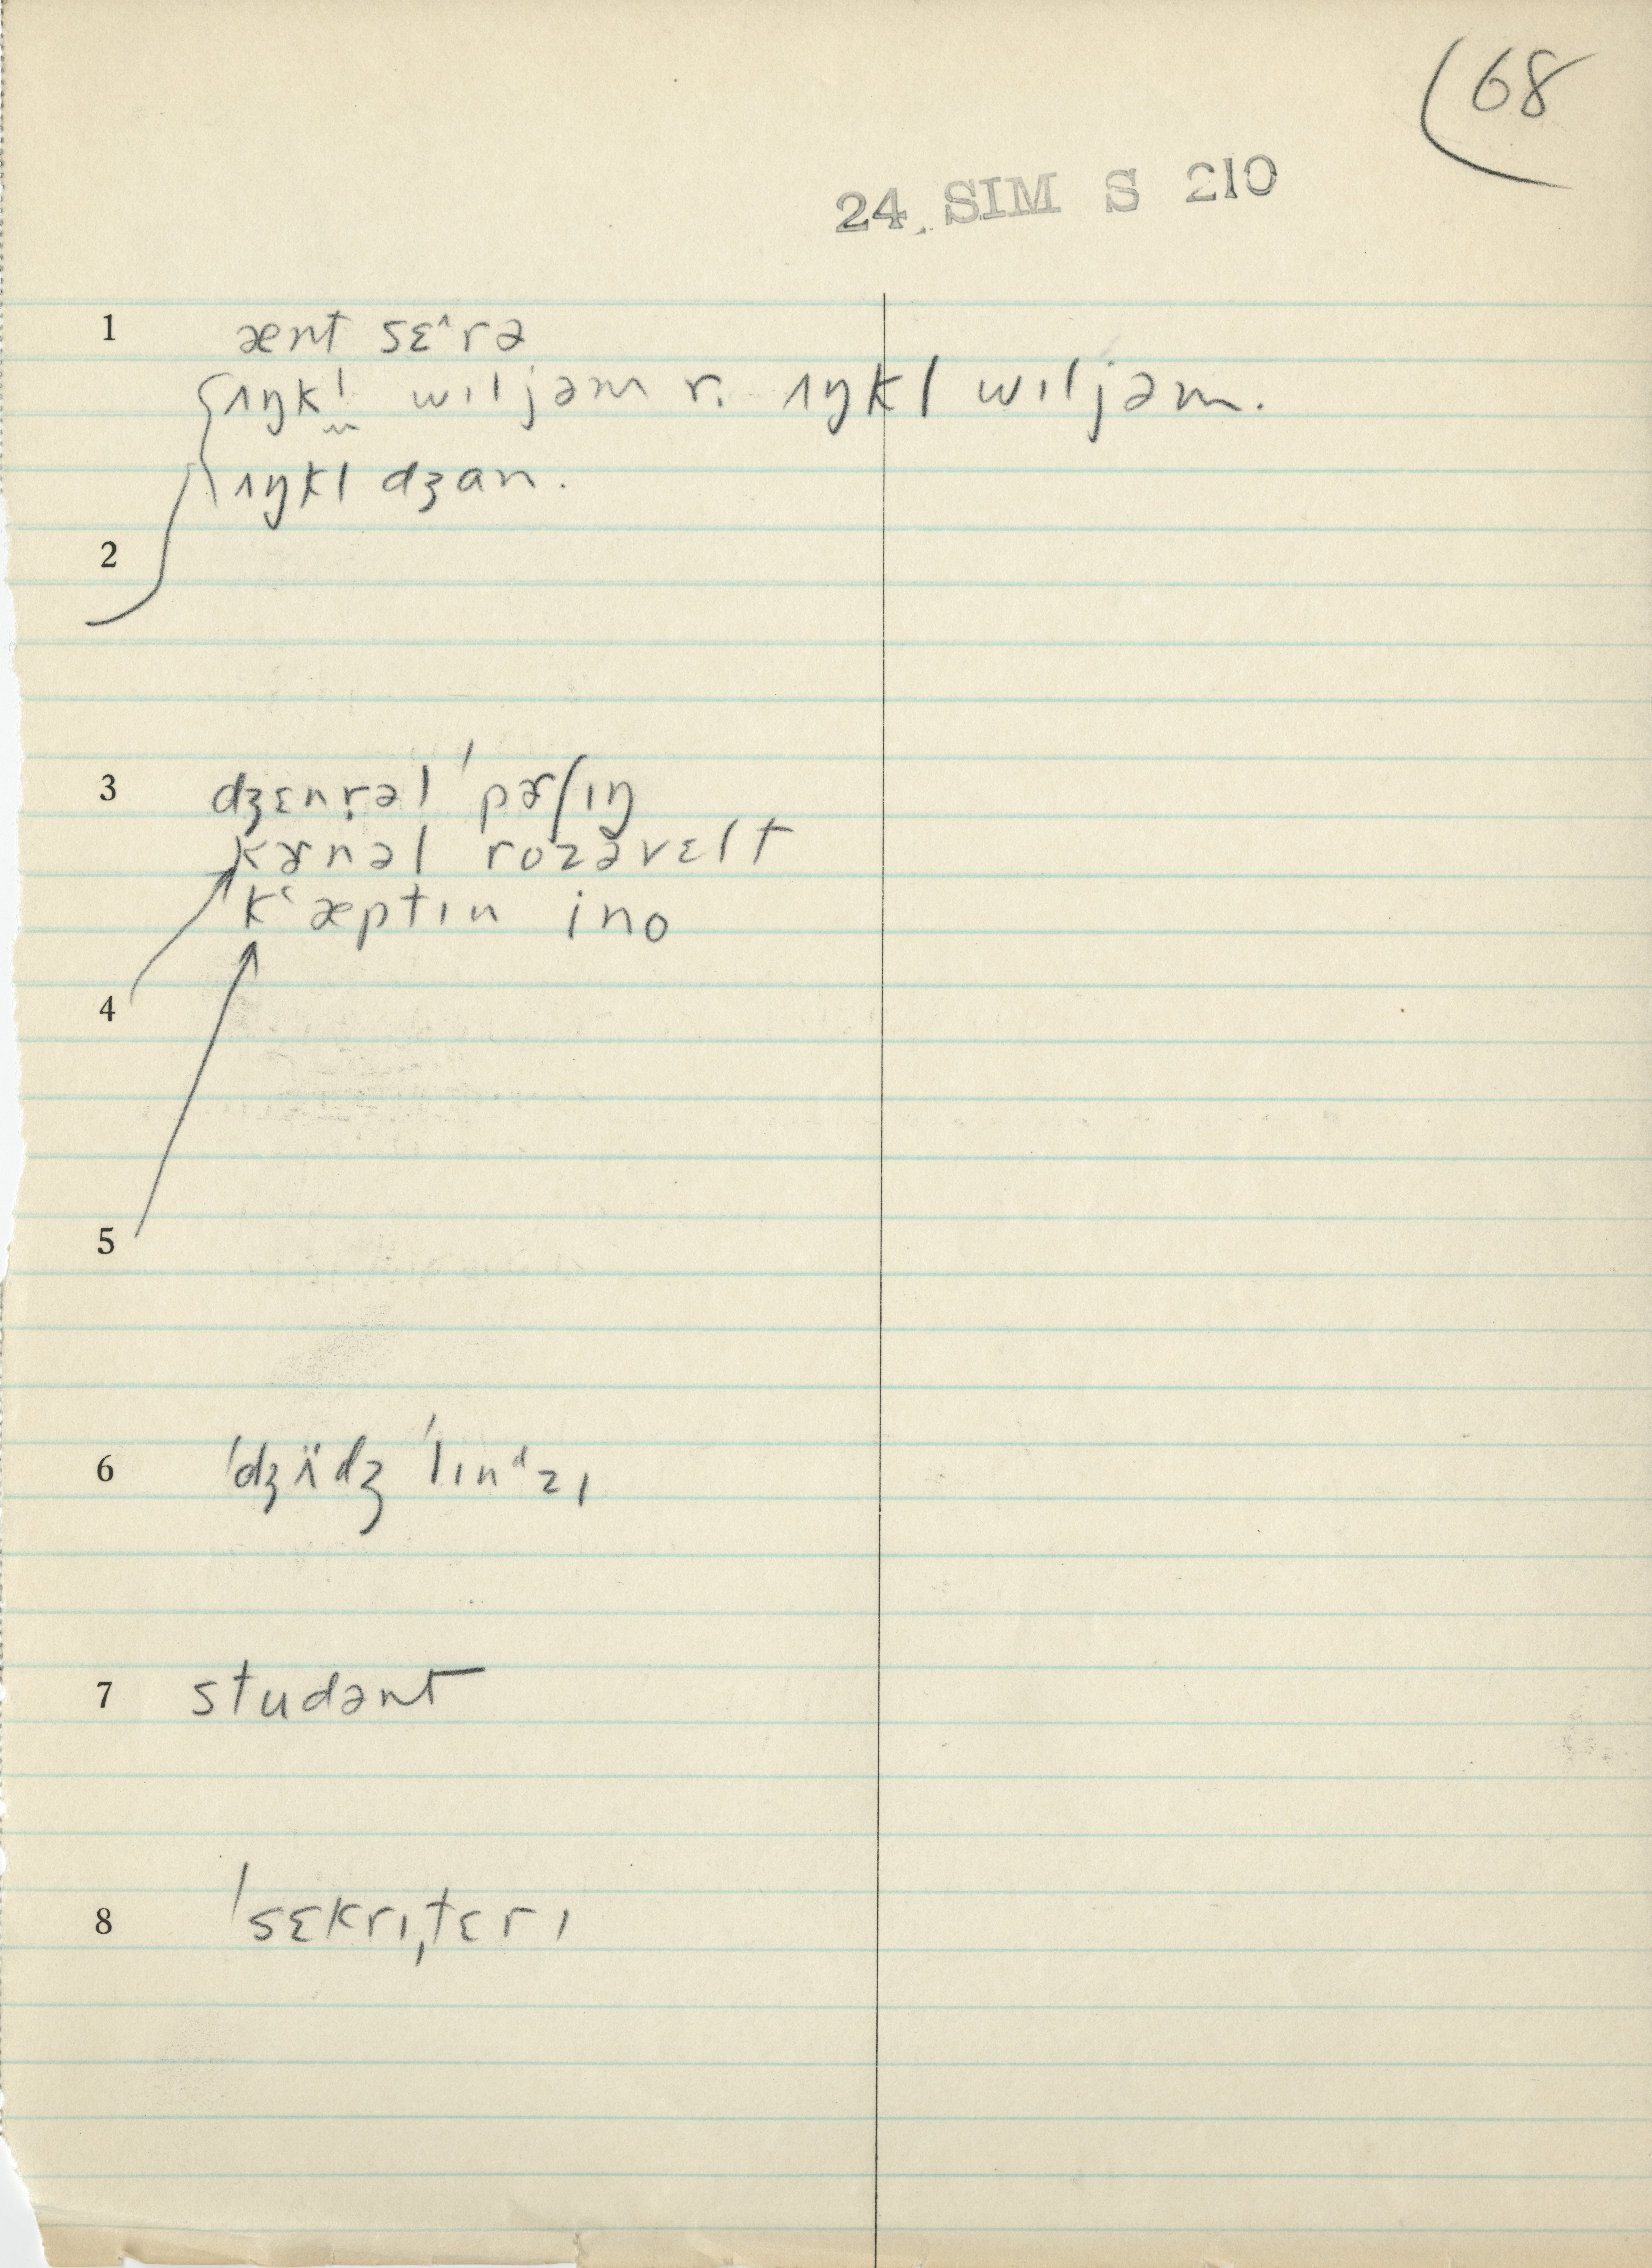 68
24 SIM S 210
1 ænt sɛ^rə
ʌŋkl̩ wɪljəm r. ʌŋkl wɪljəm.
ʌŋkl dʒɑn.
2
3 dʒɛnr̩əl 'pɚʃɪŋ
kɚnəl rozəvɛlt
kʻæptɪn ino
4
5
6 'dʒʌ̈dʒ 'lɪnᵈzɪ
7 studənt
8 'sɛkrɪˌtɛrɪ